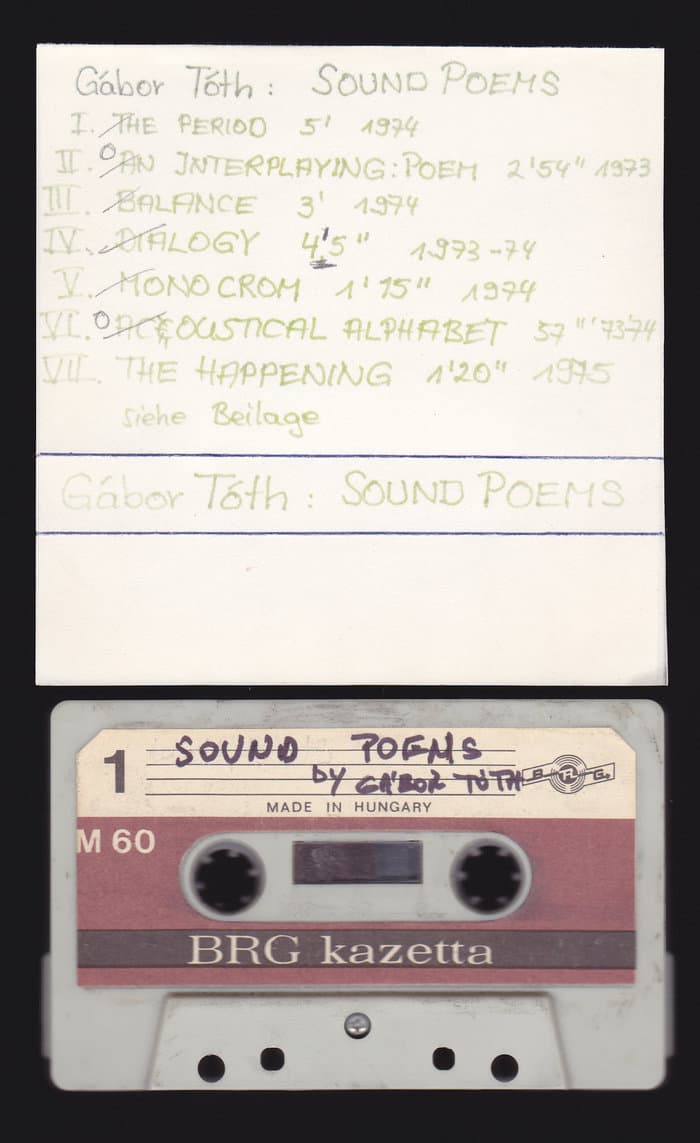 Gábor Tóth: SOUND POEMS
I. THE PERIOD 5' 1974
II. AN INTERPLAYING:POEM 2'54" 1973
III. BALANCE 3' 1974
IV. DIALOGY 4'5" 1973-74
V. MONOCROM 1'15" 1974
VI. ACCOUSTICAL ALPHABET 37" '73-74
VII. THE HAPPENING 1'20" 1975
siehe Beilage
Gábor Tóth: SOUND POEMS
1 SOUND POEMS
by GÁBOR TÓTH
B R G
MADE IN HUNGARY
M 60
BRG kazetta